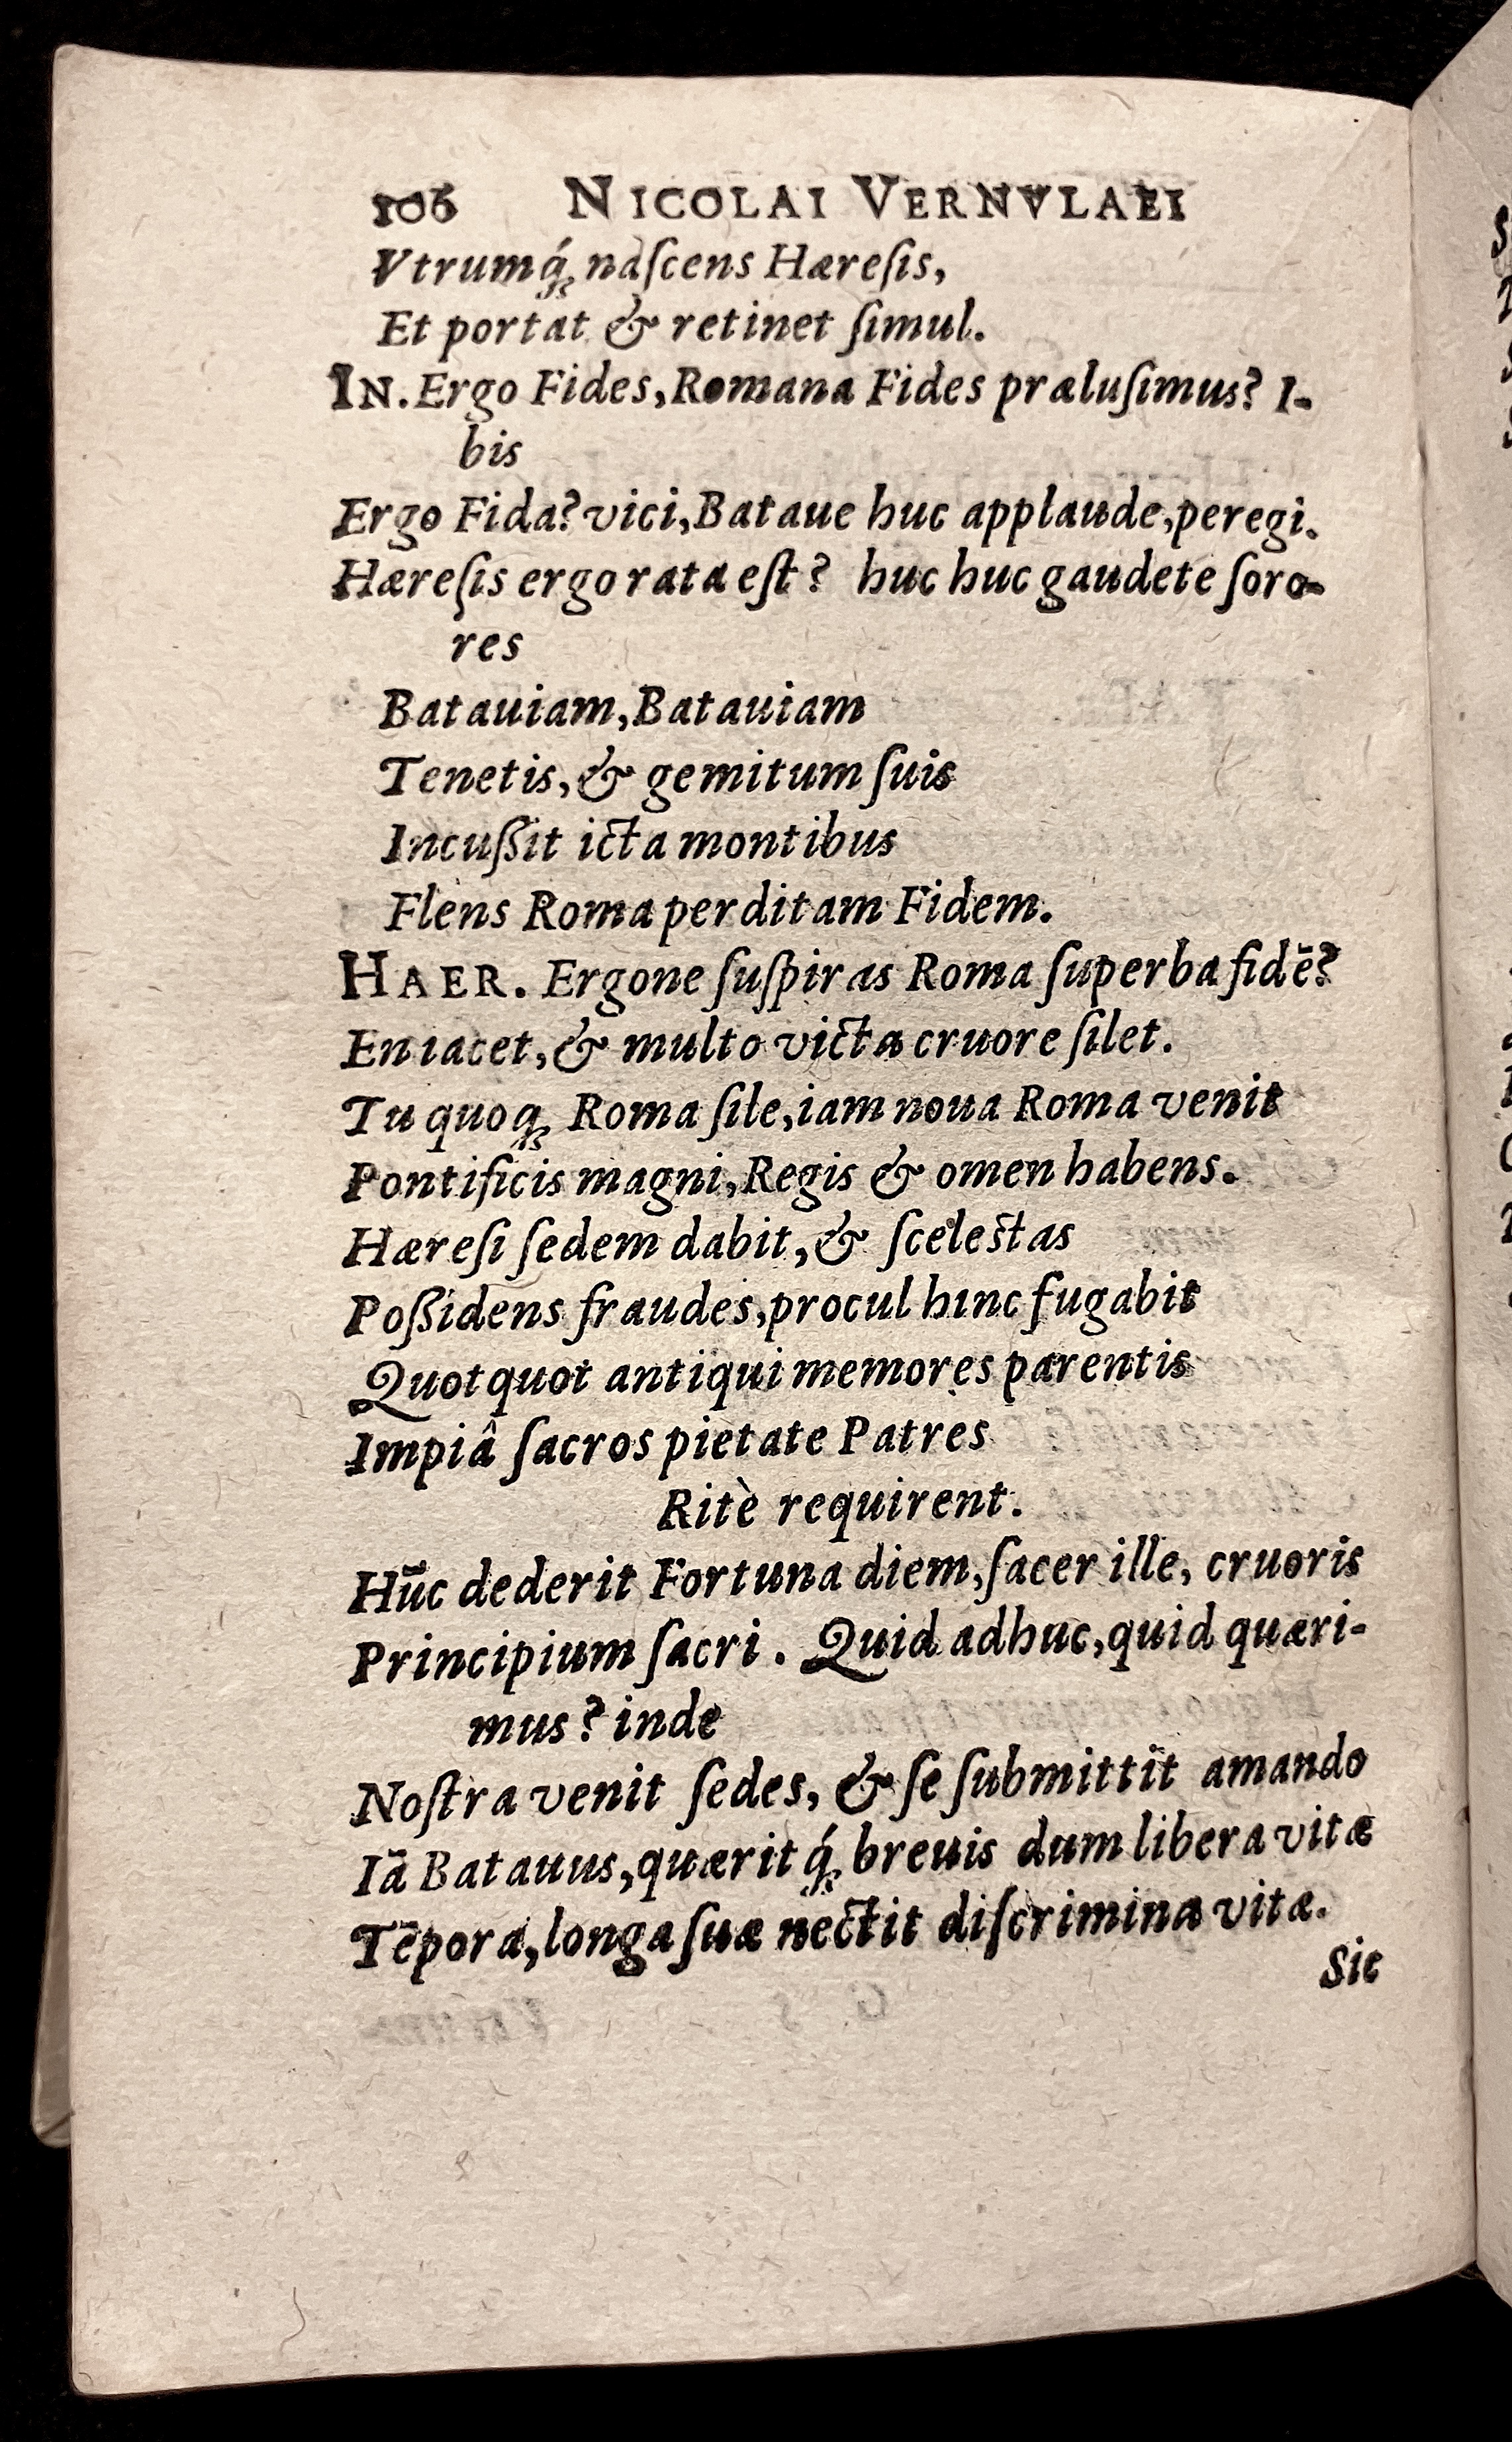 106 NICOLAI VERNVLAEI
Vtrumq́ꝫ naſcens Hæreſis,
Et portat & retinet ſimul.
IN. Ergo Fides, Romana Fides præluſimus? I-
bis
Ergo Fida? vici, Bataue huc applaude, peregi.
Hæreſis ergo rata eſt? huc huc gaudete ſoro-
res
Batauiam, Batauiam
Tenetis, & gemitum ſuis
Incuſſit icta montibus
Flens Roma perditam Fidem.
HAER. Ergone ſuſpiras Roma ſuperba fidē?
En iacet, & multo victa cruore ſilet.
Tu quoqꝫ Roma ſile, iam noua Roma venit
Pontificis magni, Regis & omen habens.
Hæreſi ſedem dabit, & ſceleſtas
Poſſidens fraudes, procul hinc fugabit
Quotquot antiqui memores parentis
Impiâ ſacros pietate Patres
Ritè requirent.
Hūc dederit Fortuna diem, ſacer ille, cruoris
Principium ſacri. Quid adhuc, quid quæri-
mus? inde
Noſtra venit ſedes, & ſe ſubmittit amando
Iā Batauus, quæritq́ꝫ breuis dum libera vitæ
Tēpora, longa ſuæ nectit diſcrimina vitæ.
Sic